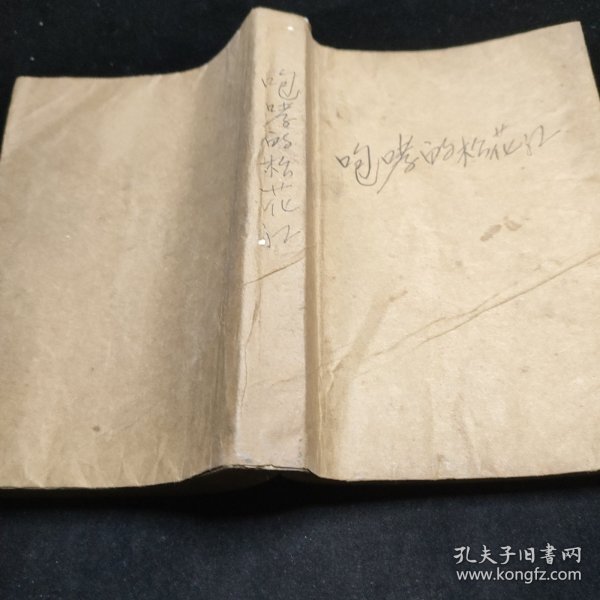 咆哮的松花江
咆哮的松花江
孔夫子旧书网
www.kongfz.com